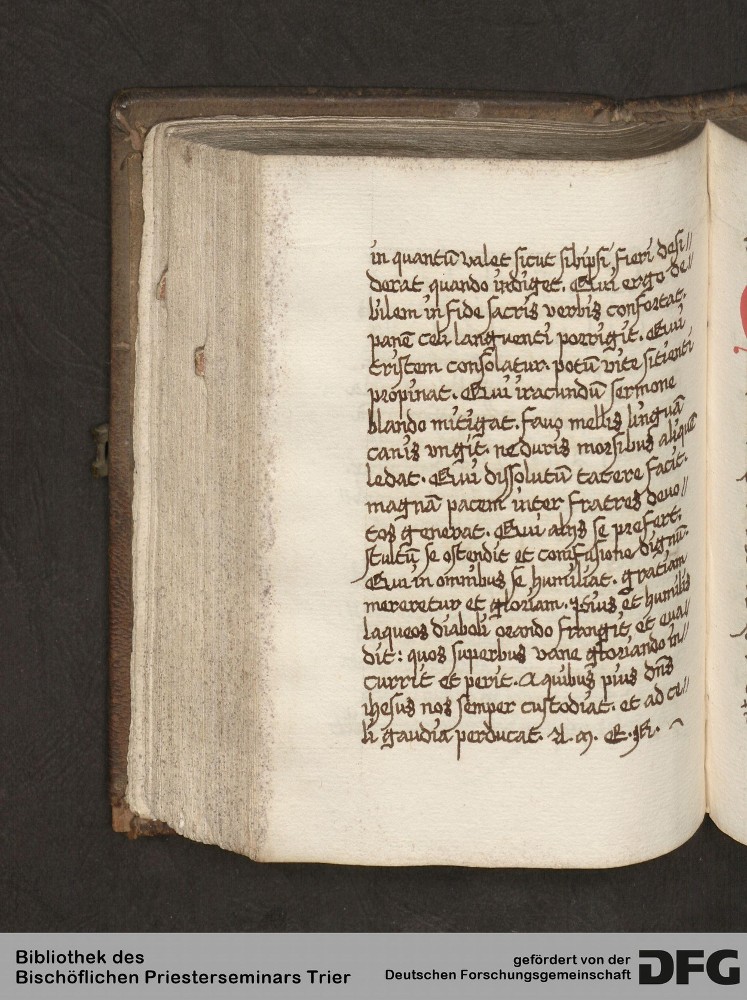 in quantū valet sicut sibipsi fieri desi//
derat quando indiget. Qui ergo de//
bilem in fide sacris verbis confortat.
panē celi languenti porrigit. Qui
tristem consolatur. potū vite sitienti
propinat. Qui iracundū sermone
blando mitigat. fauo mellis linguā
canis vngit. ne duris morsibus aliquē
ledat. Qui dissolutū tacere facit.
magnā pacem inter fratres deuo//
tos generat. Qui alijs se prefert.
stultū se ostendit et confusione dignū.
Qui in omnibus se humiliat. gratiam
meretur et gloriam. Pius et humilis
laqueos diaboli orando frangit, et eua//
dit: quos superbus vane gloriando in//
currit et perit. A quibus pius dn̄s
ihesus nos semper custodiat. et ad ce//
li gaudia perducat. A. M. E. N.
Bibliothek des
Bischöflichen Priesterseminars Trier
gefördert von der
Deutschen Forschungsgemeinschaft
DFG